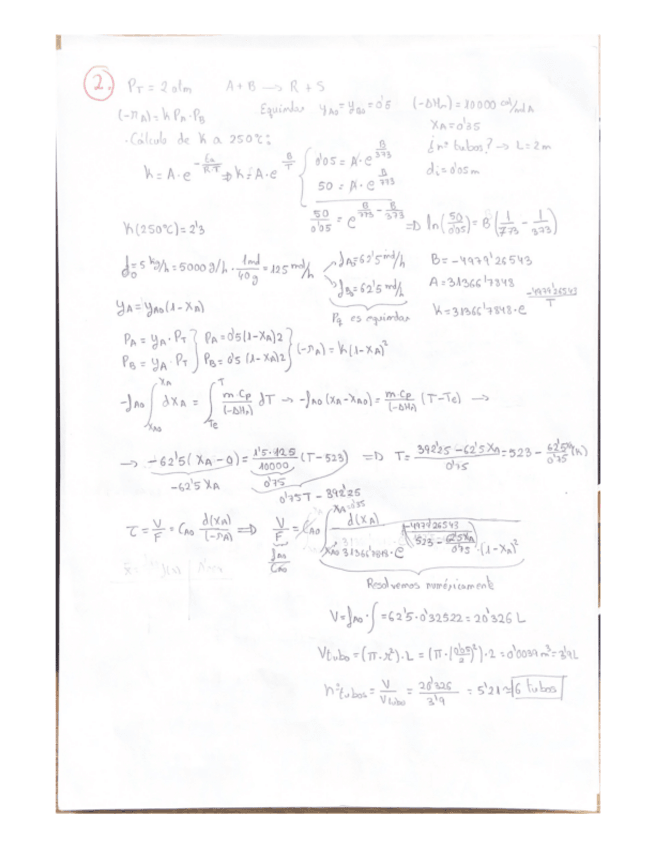 2. P_T = 2 atm A + B → R + S
(-r_A) = k P_A · P_B Equimolar y_A0 = y_B0 = 0'5 (-ΔH_r) = 10000 cal/mol A
· Cálculo de k a 250ºC: X_A = 0'35
¿nº tubos? → L = 2m
k = A · e^(-Ea/RT) ⇒ k = A · e^(B/T) { 0'05 = A · e^(B/373) d_i = 0'05m
50 = A · e^(B/773)
50/0'05 = e^(B/773 - B/373) ⇒ ln(50/0'05) = B(1/773 - 1/373)
k(250ºC) = 2'3
f_0 = 5 kg/h = 5000 g/h · 1 mol/40 g = 125 mol/h f_A0 = 62'5 mol/h B = -4979'26543
f_B0 = 62'5 mol/h A = 31366'7848
y_A = y_A0 (1 - X_A) Pq es equimolar k = 31366'7848 · e^(-4979'26543/T)
P_A = y_A · P_T } P_A = 0'5 (1 - X_A) 2 } (-r_A) = k (1 - X_A)²
P_B = y_A · P_T } P_B = 0'5 (1 - X_A) 2
-f_A0 ∫_{X_A0}^{X_A} dX_A = ∫_{Te}^{T} m·Cp/(-ΔH_r) dT → -f_A0 (X_A - X_A0) = m·Cp/(-ΔH_r) (T - Te) →
→ -62'5 (X_A - 0) = 1'5·125/10000 (T - 523) ⇒ T = 392'25 - 62'5X_A/0'75 = 523 - 62'5X_A/0'75 (K)
-62'5 X_A 0'75
0'75T - 392'25
τ = V/F = C_A0 d(X_A)/(-r_A) ⇒ V/F = C_A0 ∫_{X_A0}^{X_A=0'35} d(X_A)/(31366'7848 · e^(-4979'26543/(523 - 62'5X_A/0'75)) · (1 - X_A)²)
f_A0/C_A0
Resolvemos numéricamente
V = f_A0 · ∫ = 62'5 · 0'32522 = 20'326 L
V tubo = (π · r²) · L = (π · (0'05/2)²) · 2 = 0'0039 m³ = 3'9L
nº tubos = V/V tubo = 20'326/3'9 = 5'21 ≈ 6 tubos